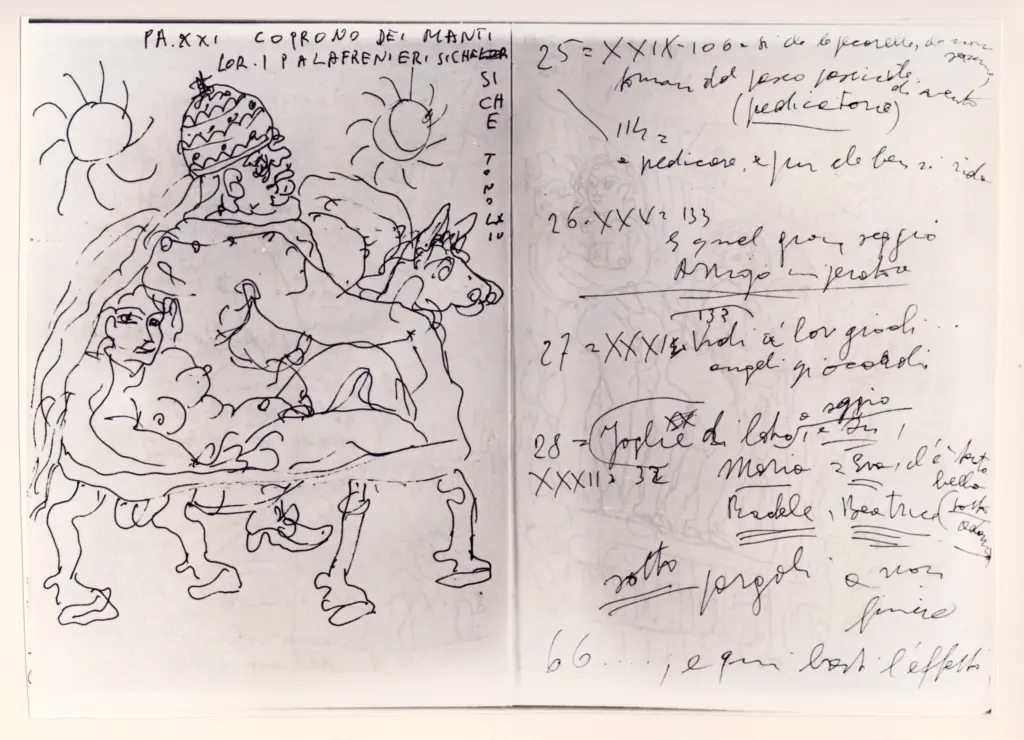 PA.XXI COPRONO DEI MANTI
LOR. I PALAFRENIERI SICHE
SI
CH
E
25 = XXIX-106 = si che le pecorelle, che non sanno
tornan del pasco pasciute di vento
114 =
e pedicare, e pur che ben si rida
26 - XXX = 133
E quel gran seggio
Arrigo imperatore
133
27 = XXXI = Vidi a' lor giochi...
angeli giocondi
28 = Foglie di
XXXII = 32 Maria = Eva, ch'è tanto bella
Rachele, Beatrice (sotto
sotto pargoli a non
finire
66 ...., e qui basti l'effetto,